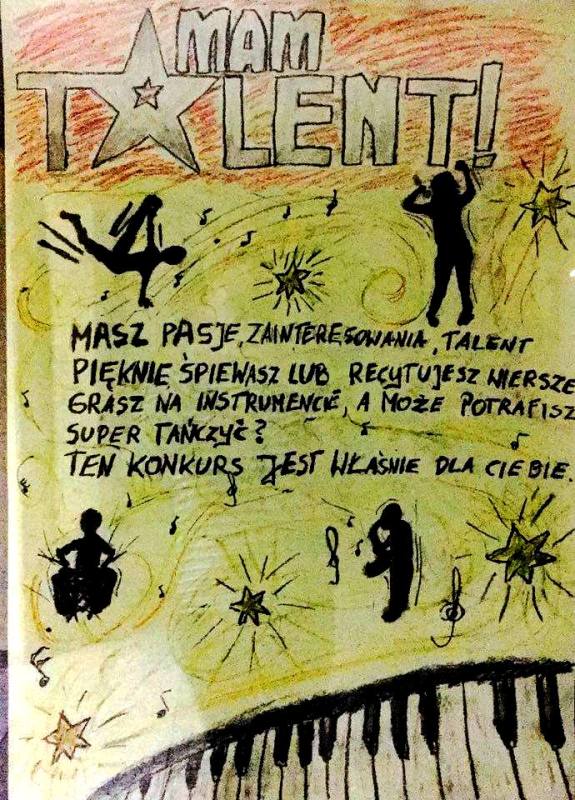 MAM
TALENT!
MASZ PASJE, ZAINTERESOWANIA, TALENT
PIĘKNIE ŚPIEWASZ LUB RECYTUJESZ WIERSZE
GRASZ NA INSTRUMENCIE, A MOŻE POTRAFISZ
SUPER TAŃCZYĆ?
TEN KONKURS JEST WŁAŚNIE DLA CIEBIE.